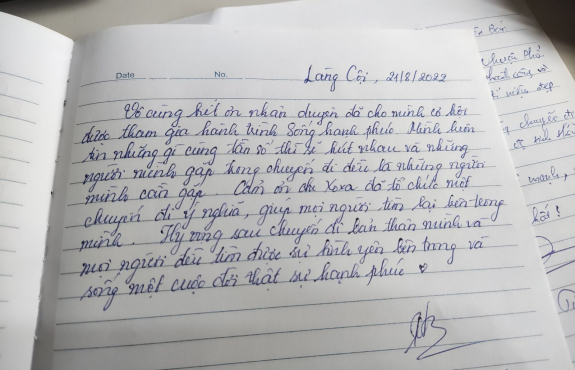 Date No.
Làng Cội, 21/8/2022
Vô cùng biết ơn nhân duyên đã cho mình cơ hội
được tham gia hành trình Sống hạnh phúc. Mình luôn
tin những gì cùng tần số thì sẽ hút nhau và những
người mình gặp trong chuyến đi đều là những người
mình cần gặp. Cảm ơn chị đã tổ chức một
chuyến đi ý nghĩa, giúp mọi người tìm lại bên trong
mình. Hy vọng sau chuyến đi bản thân mình và
mọi người đều tìm được sự bình yên bên trong và
sống một cuộc đời thật sự hạnh phúc